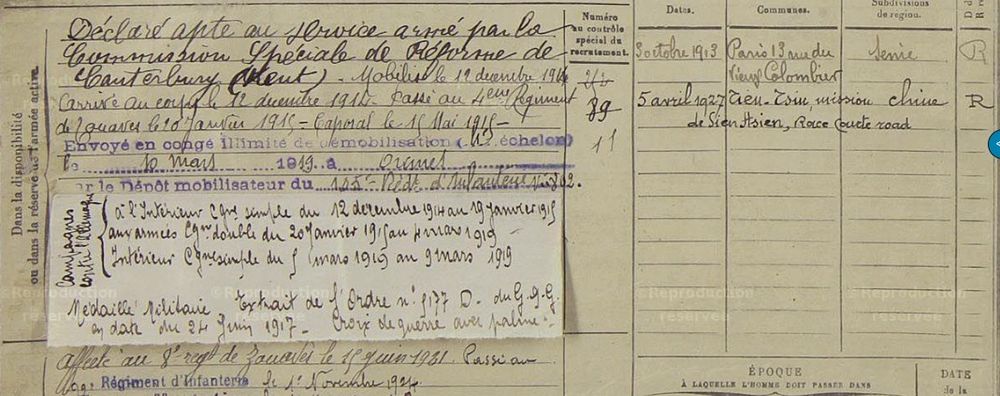 Déclaré apte au service armé par la
Commission Spéciale de Réforme de
Canterbury (Kent). - Mobilisé le 12 décembre 1914
Arrivé au corps le 12 décembre 1914 - Passé au 4eme Régiment
de Zouaves le 20 Janvier 1915 - Caporal le 15 Mai 1915 -
Envoyé en congé illimité de démobilisation ( échelon)
le 10 mars 1919 à
par le Dépôt mobilisateur du Régt d'Infanterie
Campagnes contre l'Allemagne
à l'Intérieur Cgne simple du 12 décembre 1914 au 19 Janvier 1915
aux armées Cgne double du 20 Janvier 1915 au 4 mars 1919
Intérieur Cgne simple du 5 mars 1919 au 9 mars 1919
Médaille Militaire Extrait de l'Ordre n° 5177 D. du G.Q.G.
en date du 24 Juin 1917 - Croix de guerre avec palme.
Affecté au 8e régt de Zouaves le 15 juin 1921. Passé au
Régiment d'Infanterie le 1er Novembre 1924
Dans la disponibilité
ou dans la réserve de l'armée active.
Numéro
au contrôle
spécial du
recrutement.
89
11
Dates.
Communes.
Subdivisions
de région.
3 octobre 1913 Paris 13 rue du Seine R
Vieux Colombier
5 avril 1927 Tien-Tsin, mission chine R
de Sien Hsien, Race Course road
ÉPOQUE
À LAQUELLE L'HOMME DOIT PASSER DANS
DATE
de la
©Reproduction